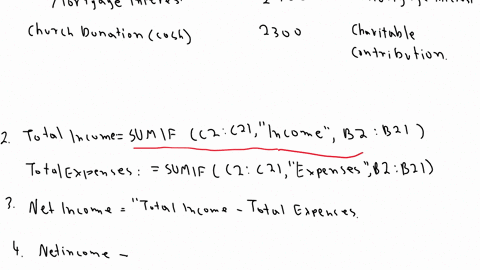 Church Dunation (cosh) 2300 Charitable
contribution.
2. Total Income= SUMIF (C2:C21,"Income", B2:B21)
Total Expenses: = SUMIF((C2:C21,"Expenses",B2:B21)
3. Net Income = "Total Income - Total Expences.
4. Netincome -